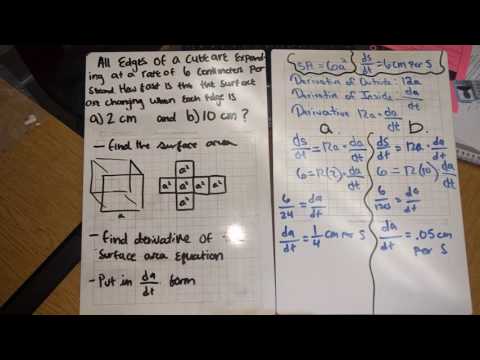 All Edges of a Cube are Expand-
ing at a rate of 6 Centimeters Per
Second How fast is the
Surface
changing when Each Edge is
a) 2 cm and b) 10 cm ?
- find the surface area
a² a² a² a² a² a²
a
- find derivative of
surface area Equation
- Put in da/dt form
SA = 6a² ds/dt = 6 cm per S
Derivative of Outside: 12a
Derivative of Inside: da/dt
Derivative 12a · da/dt
a. b.
ds/dt = 12a · da/dt
6 = 12(2) · da/dt
6/24 = da/dt
da/dt = 1/4 cm per S
ds/dt = 12a · da/dt
6 = 12(10) da/dt
6/120 = da/dt
da/dt = .05 cm
per S